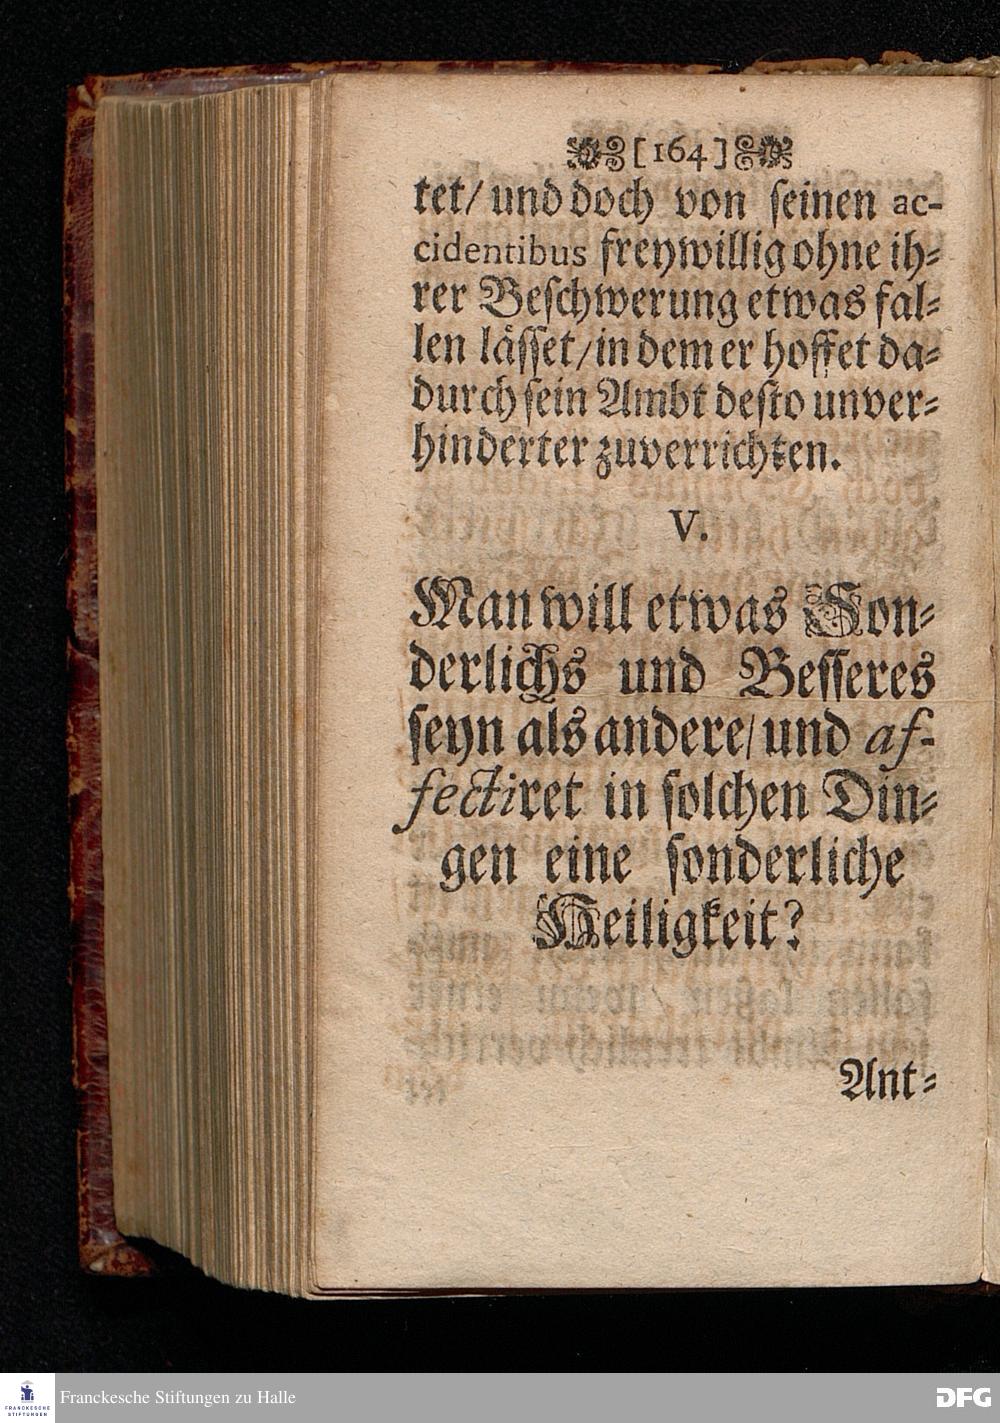 [164]
tet/ und doch von seinen ac-
cidentibus freywillig ohne ih-
rer Beschwerung etwas fal-
len lässet/ in dem er hoffet da-
durch sein Ambt desto unver-
hinderter zuverrichten.
V.
Man will etwas Son-
derlichs und Besseres
seyn als andere/ und af-
fectiret in solchen Din-
gen eine sonderliche
Heiligkeit?
Ant-
FRANCKESCHE
STIFTUNGEN
Franckesche Stiftungen zu Halle
DFG